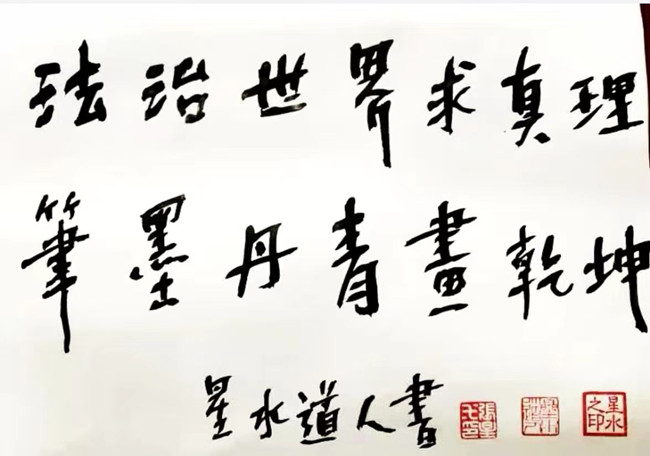 法治世界求真理
筆墨丹青畫乾坤
星水道人書
星水之印